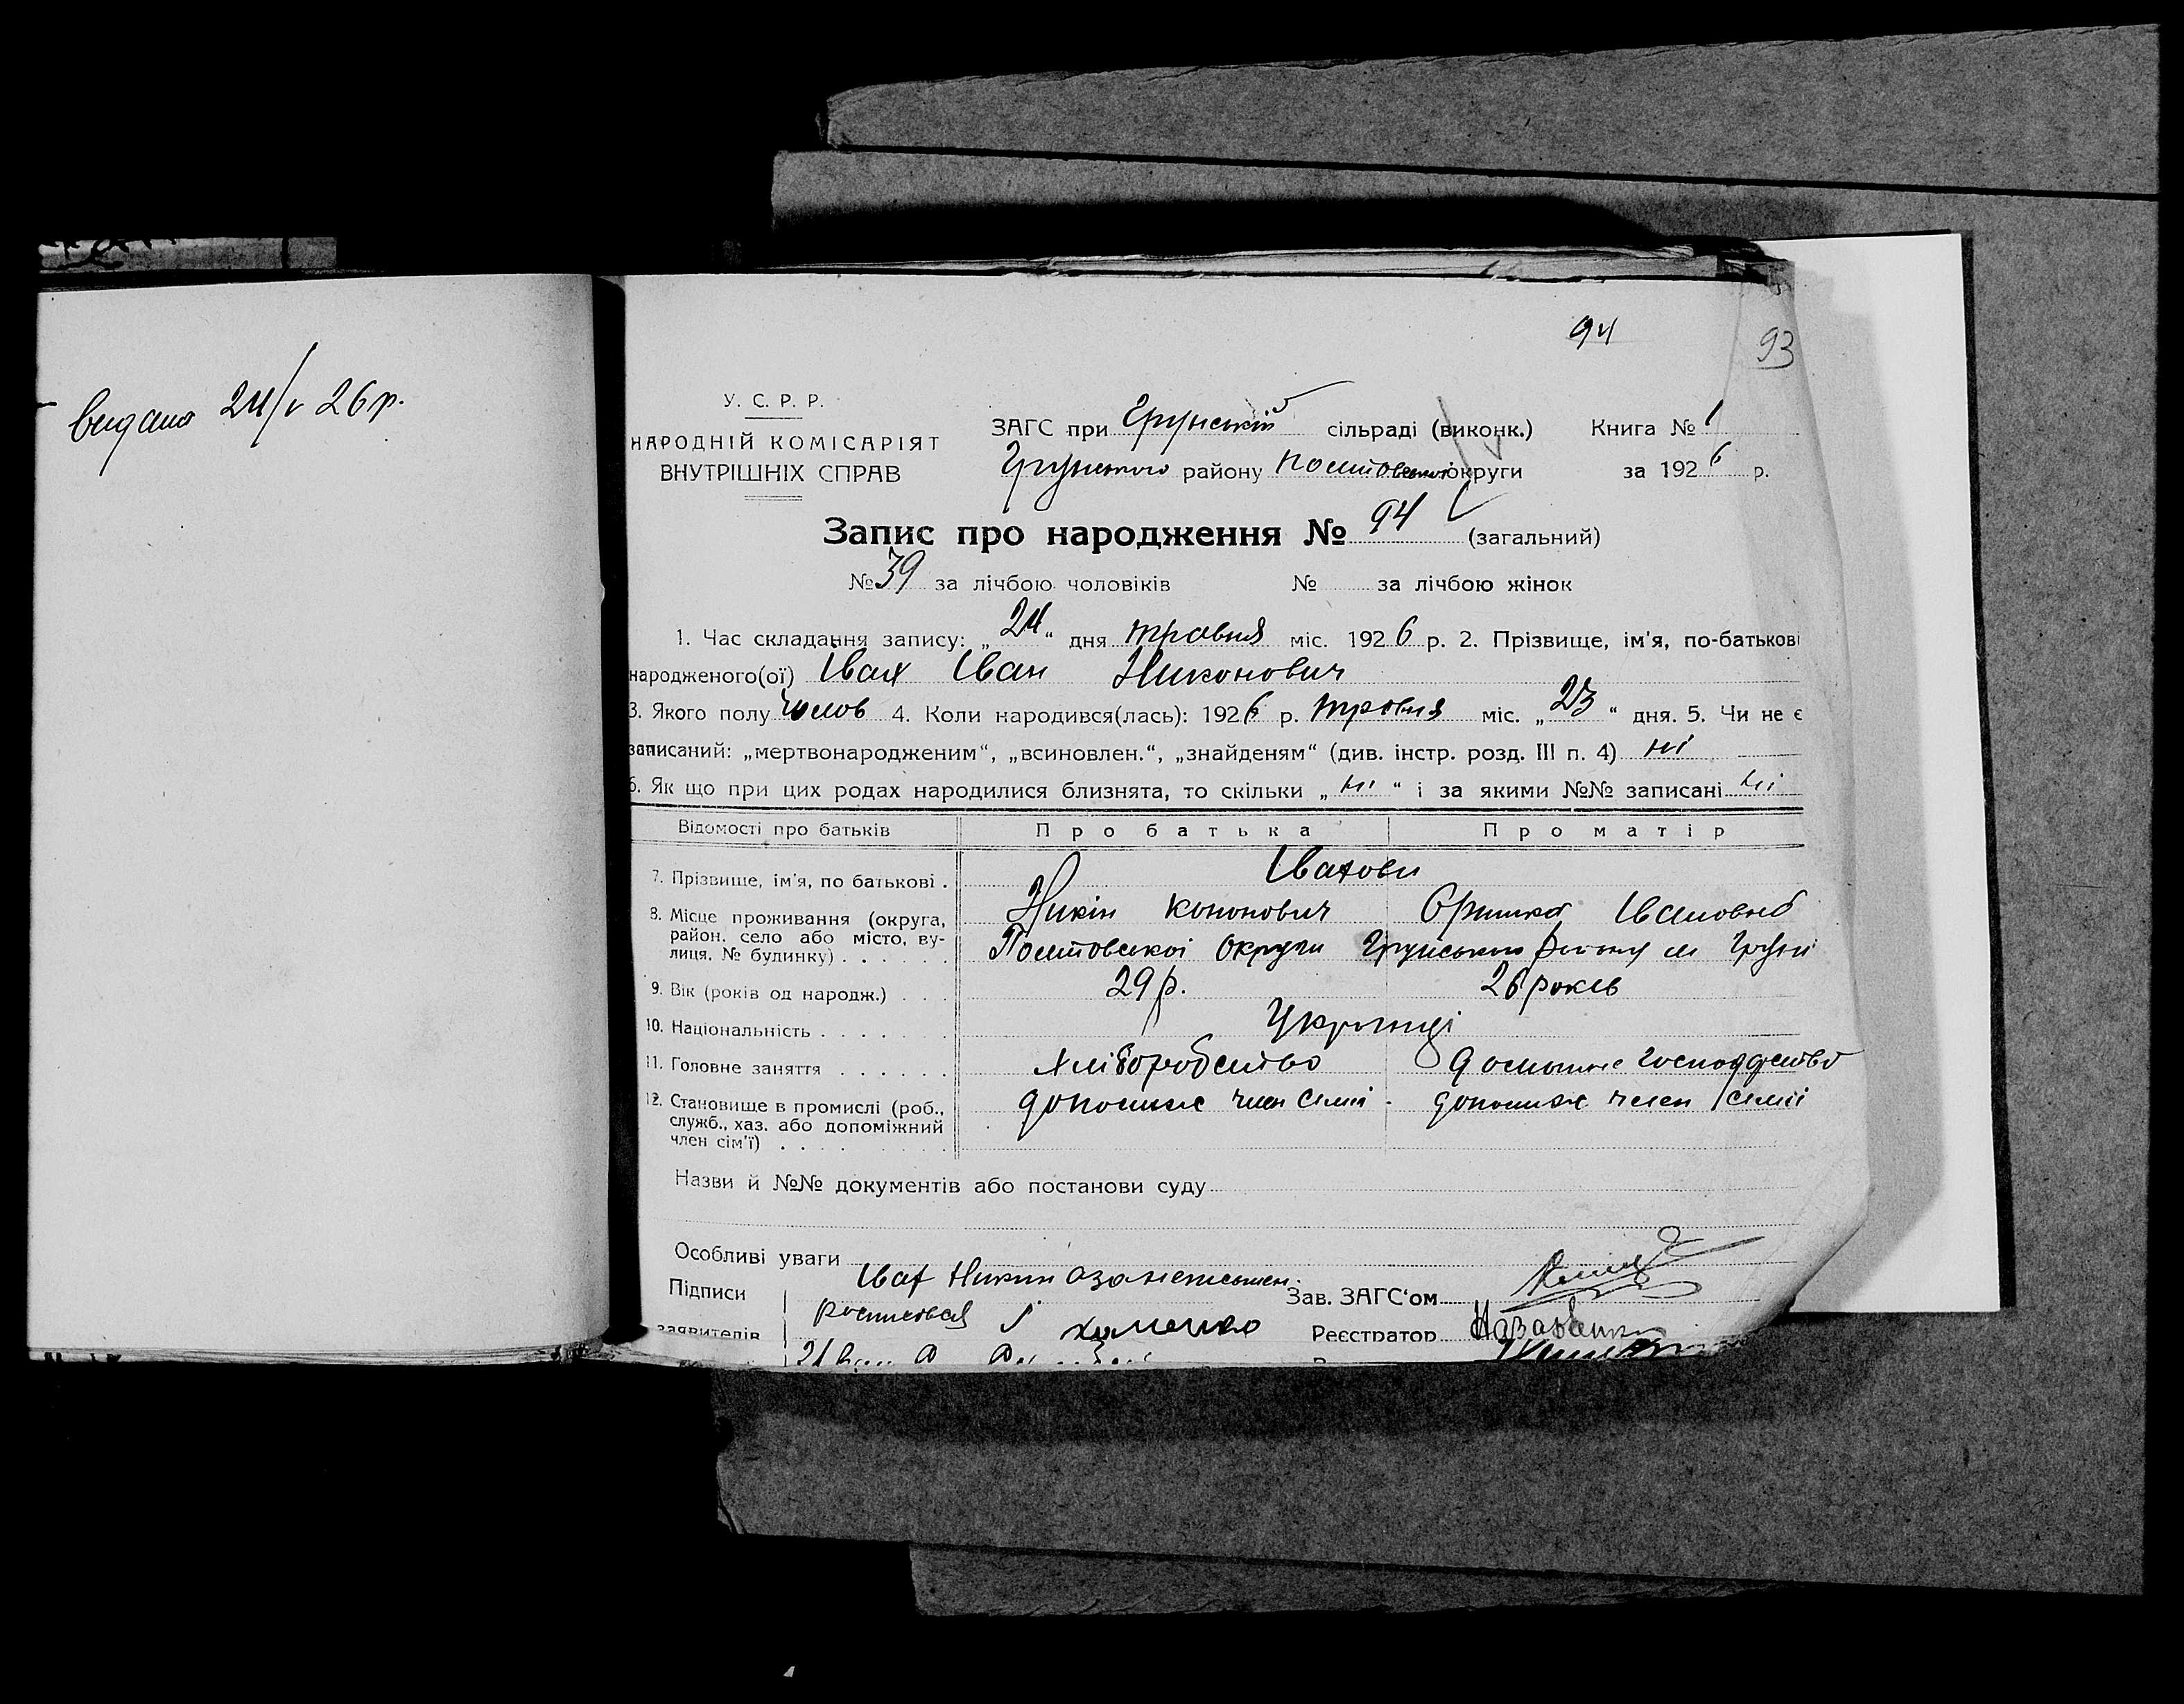 видано 24/V 26 р.
94
93
У. С. Р. Р.
НАРОДНІЙ КОМІСАРІЯТ
ВНУТРІШНІХ СПРАВ
ЗАГС при Грунській сільраді (виконк.) Книга № 1
Грунського району Полтовської округи за 1926 р.
Запис про народження № 94 (загальний)
№ 39 за лічбою чоловіків № за лічбою жінок
1. Час складання запису: „24“ дня травня міс. 1926 р. 2. Прізвище, ім'я, по-батькові
народженого(ої) Івах Іван Никонович
3. Якого полу чолов 4. Коли народився(лась): 1926 р. травня міс. „23“ дня. 5. Чи не є
записаний: „мертвонародженим“, „всиновлен.“, „знайденям“ (див. інстр. розд. III п. 4) ні
6. Як що при цих родах народилися близнята, то скільки „ні“ і за якими №№ записані ні
Відомості про батьків Про батька Про матір
Івахови
7. Прізвище, ім'я, по батькові . Никін Кононович Оришка Івановна
8. Місце проживання (округа,
район, село або місто, ву-
лиця, № будинку) . . . . . . Полтовської Округи Грунського району м Груні
9. Вік (років од народж.) . . . 29 р. 26 років
10. Національність . . . . . . Українці
11. Головне заняття . . . . . . Хліборобство домашнє господарство
12. Становище в промислі (роб.,
служб., хаз. або допоміжний
член сім'ї) . . . . . . . . . допомиж член семії - допомиж член семії
Назви й №№ документів або постанови суду
Особливі уваги
Підписи Івах Никин
заявителів
Зав. ЗАГС‘ом
Реєстратор